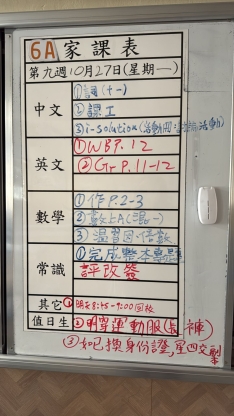 6A 家課表
第九週10月27日(星期一)
中文
①詞(十一)
②課工
③i-solution(活動
英文
①WB P.12
②Gr P.11-12
數學
①作P.2-3
②數上AC(混一)
③溫習因、倍數
常識
①完成整本專題
評改簽
其它
①明天8:45-9:00回校
值日生
②明穿運動服(長褲)
③如已換身份證,星四交